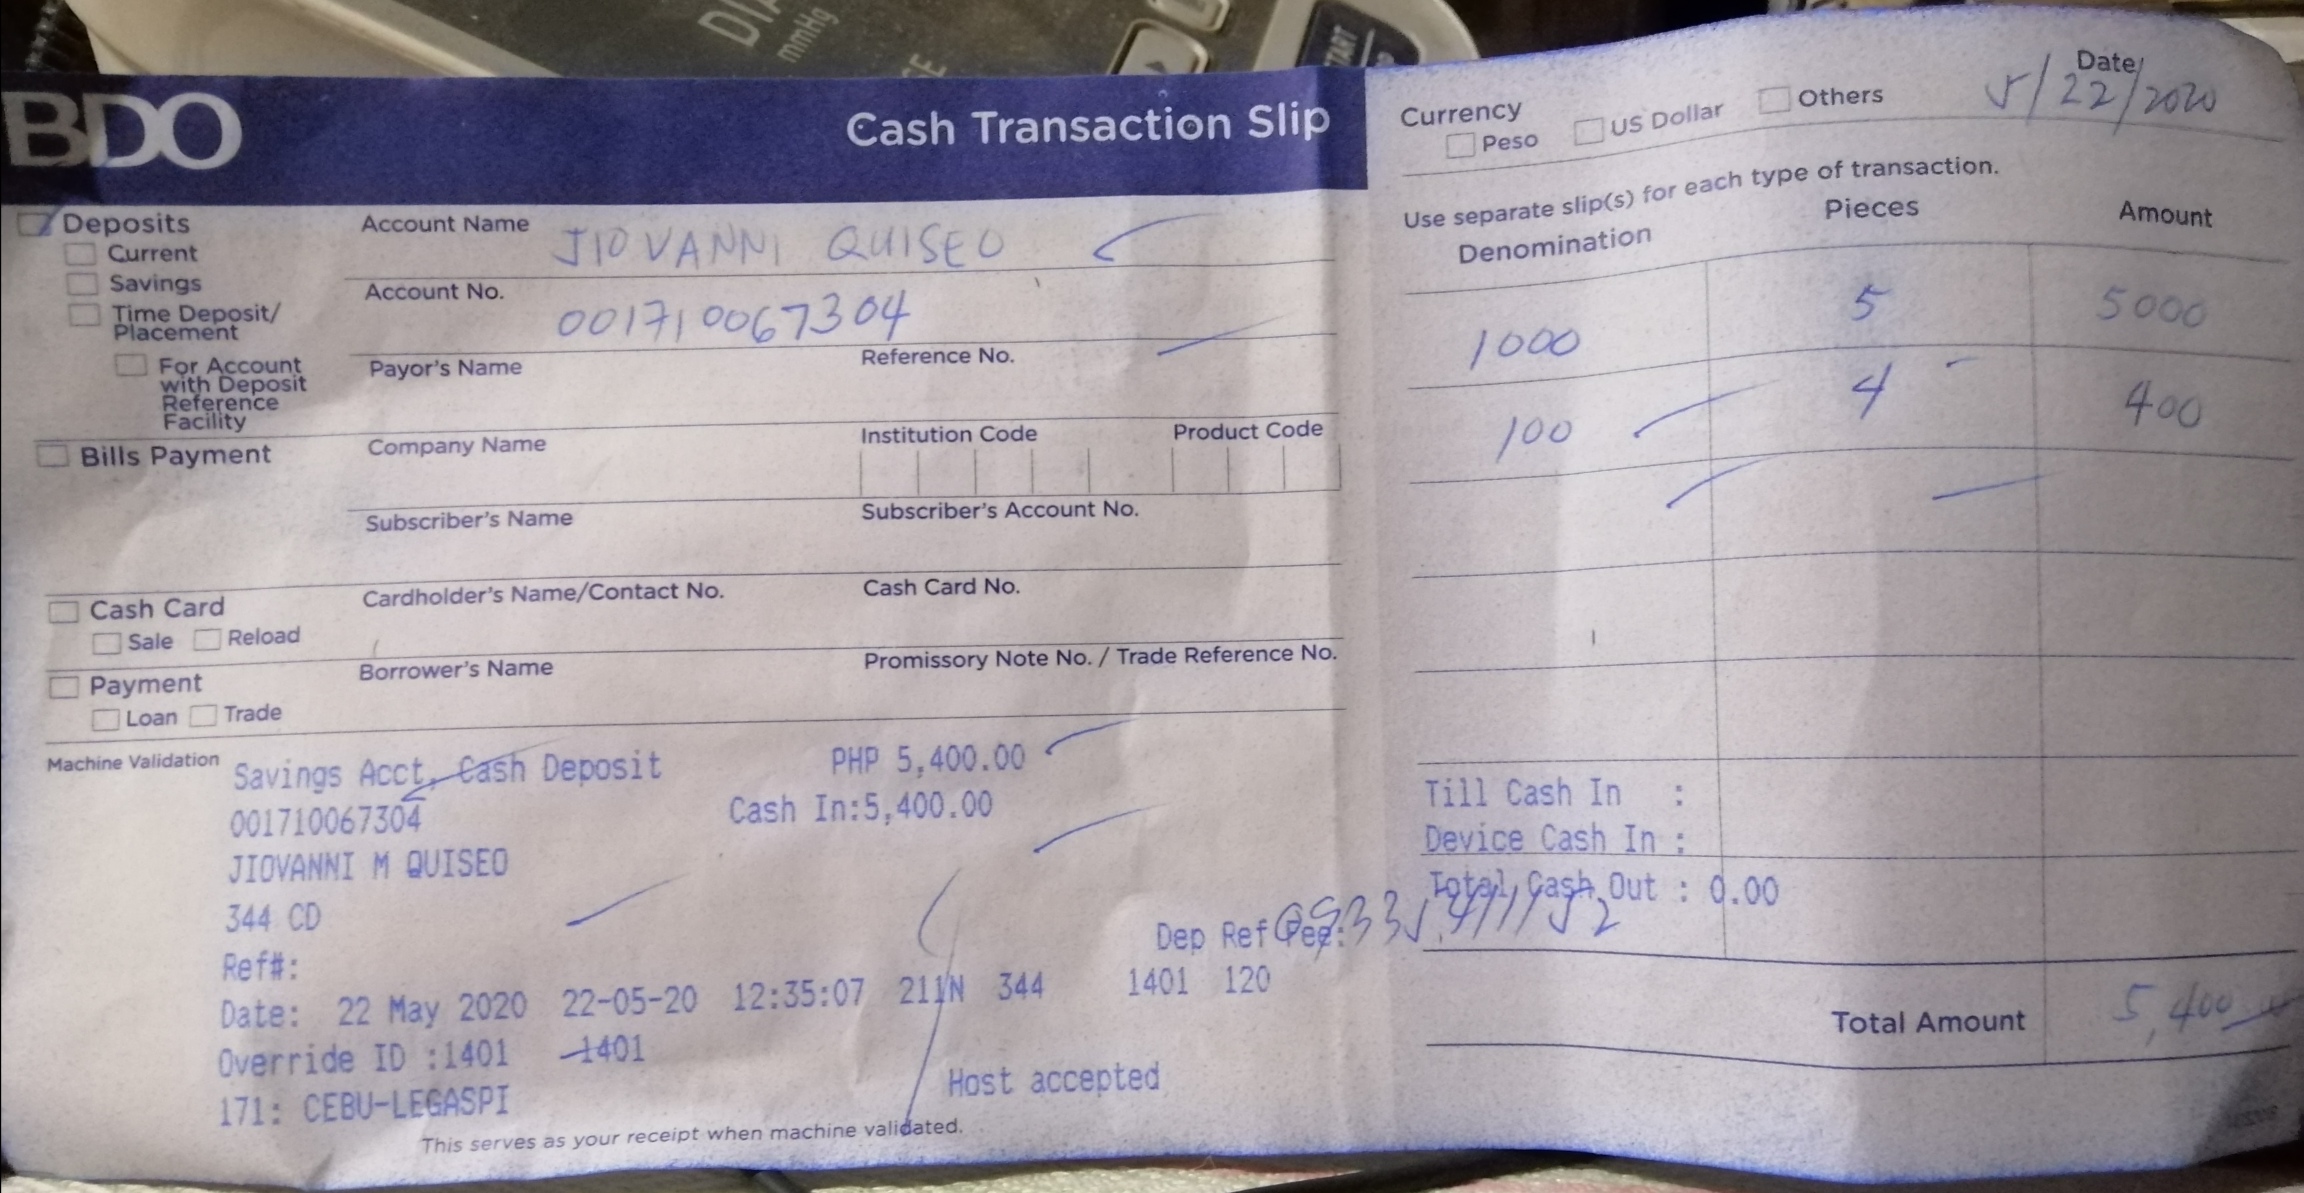 DIA
mmHg
START
BDO
Cash Transaction Slip
Deposits
Current
Savings
Time Deposit/
Placement
For Account
with Deposit
Reference
Facility
Bills Payment
Cash Card
Sale Reload
Payment
Loan Trade
Account Name JIOVANNI QUISEO
Account No. 001710067304
Payor's Name Reference No.
Company Name Institution Code Product Code
Subscriber's Name Subscriber's Account No.
Cardholder's Name/Contact No. Cash Card No.
Borrower's Name Promissory Note No. / Trade Reference No.
Machine Validation
Savings Acct, Cash Deposit PHP 5,400.00
001710067304 Cash In:5,400.00
JIOVANNI M QUISEO
344 CD
Ref#: Dep Ref Fee:
Date: 22 May 2020 22-05-20 12:35:07 211N 344 1401 120
Override ID :1401 1401
171: CEBU-LEGASPI Host accepted
This serves as your receipt when machine validated.
Currency
Peso US Dollar Others
Date 5/22/2020
Use separate slip(s) for each type of transaction.
Denomination Pieces Amount
1000 5 5000
100 4 400
Till Cash In :
Device Cash In :
Total Cash Out : 0.00
Total Amount 5,400